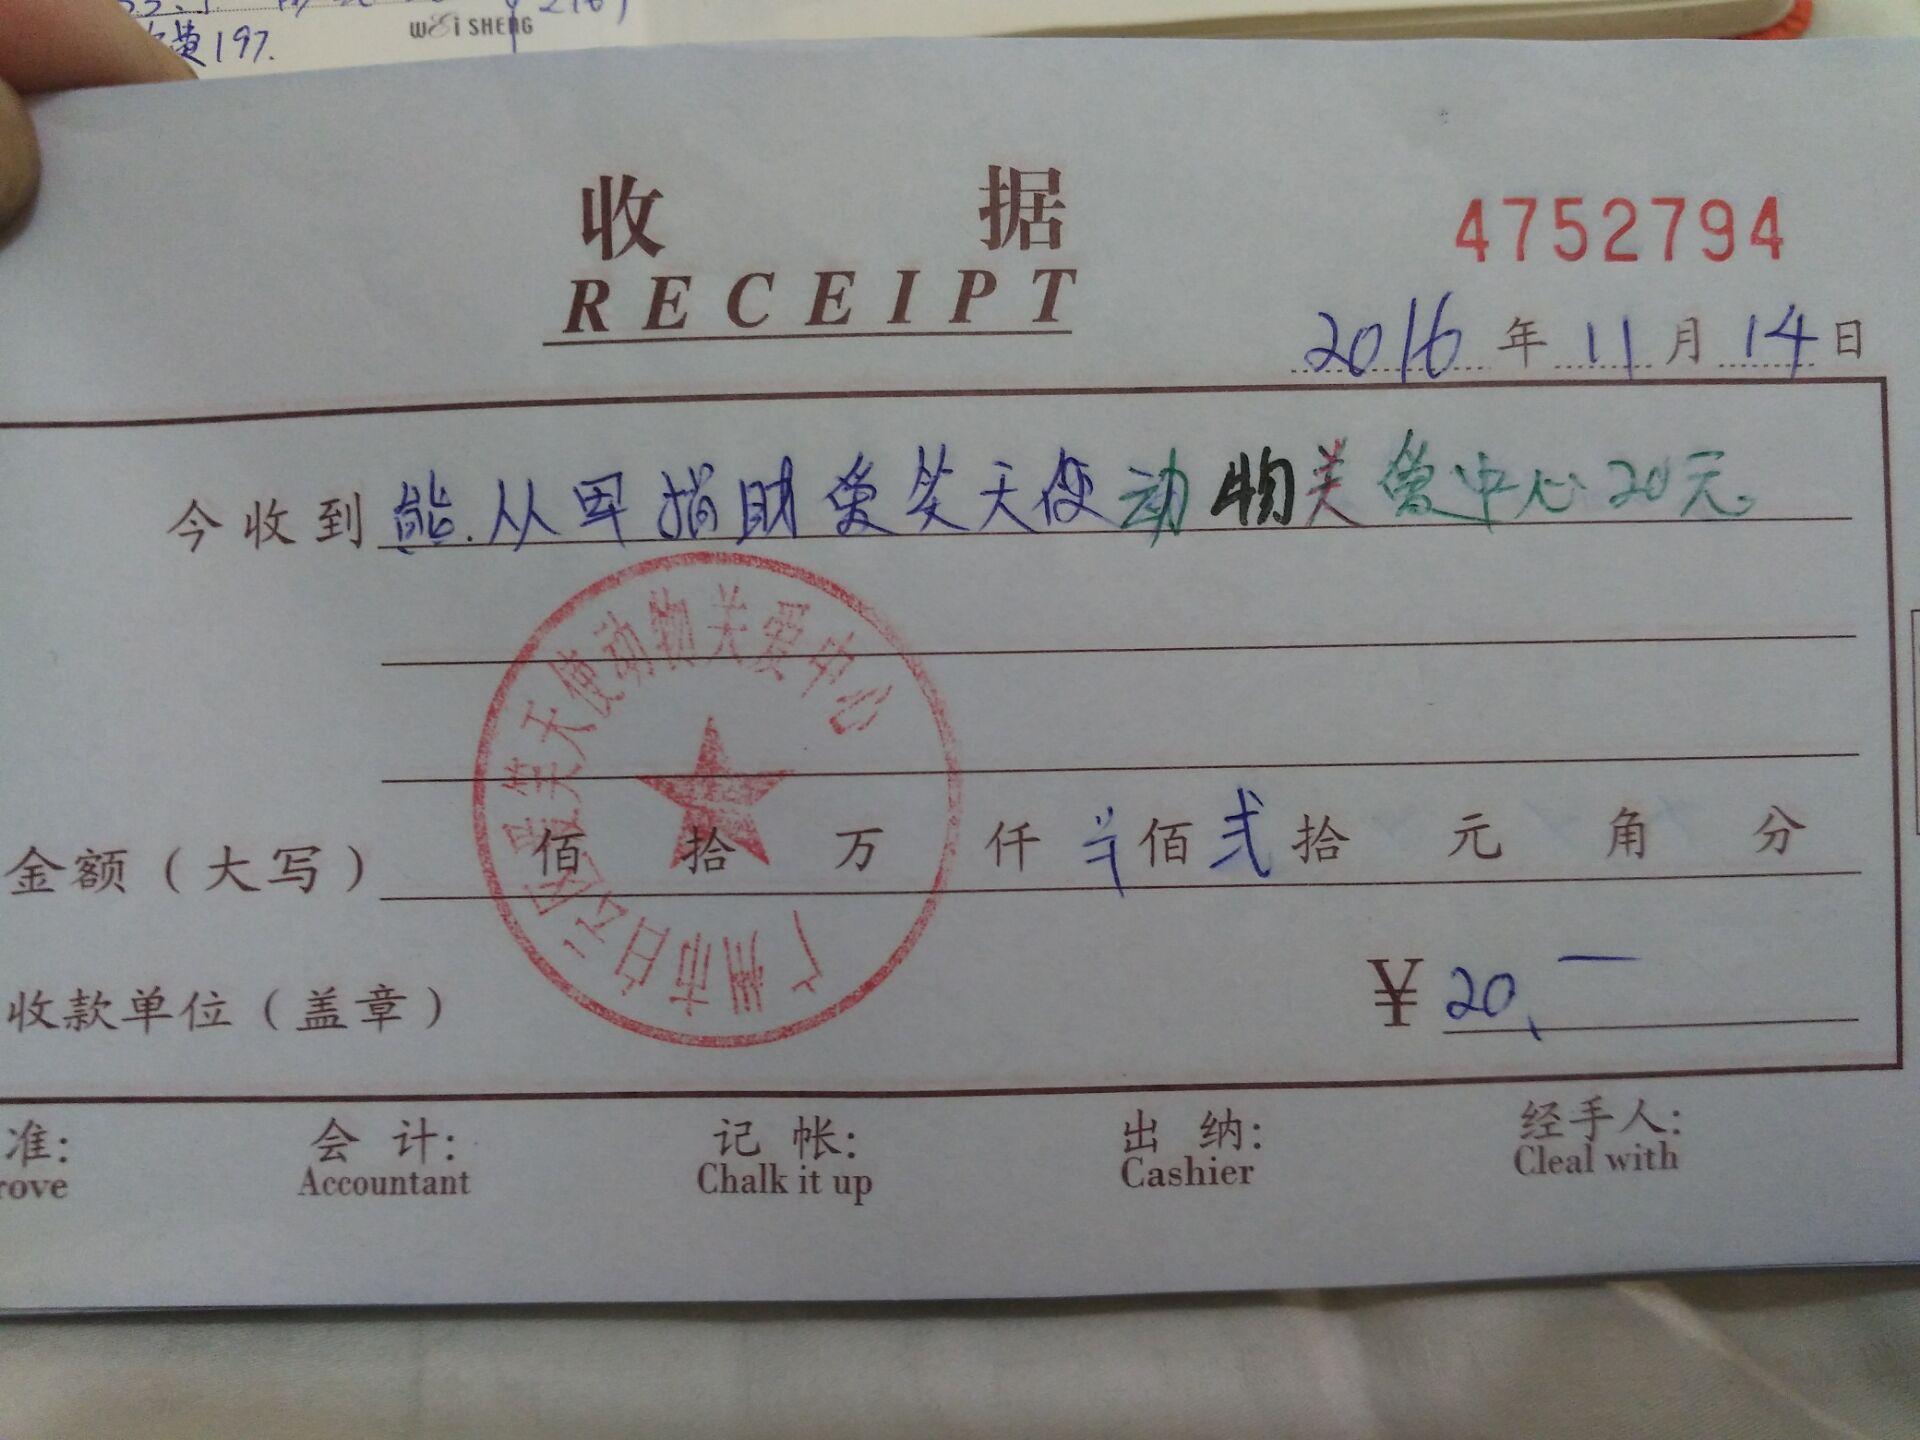 费197.
WEi SHENG
收据
4752794
RECEIPT
2016年11月14日
今收到 熊.从军捐助爱笑天使动物关爱中心20元.
广州市白云区最笑天使动物关爱中心
金额（大写） 佰 拾 万 仟 佰 弍 拾 元 角 分
收款单位（盖章） ¥20,一
准: 会 计: 记 帐: 出 纳: 经手人:
rove Accountant Chalk it up Cashier Cleal with